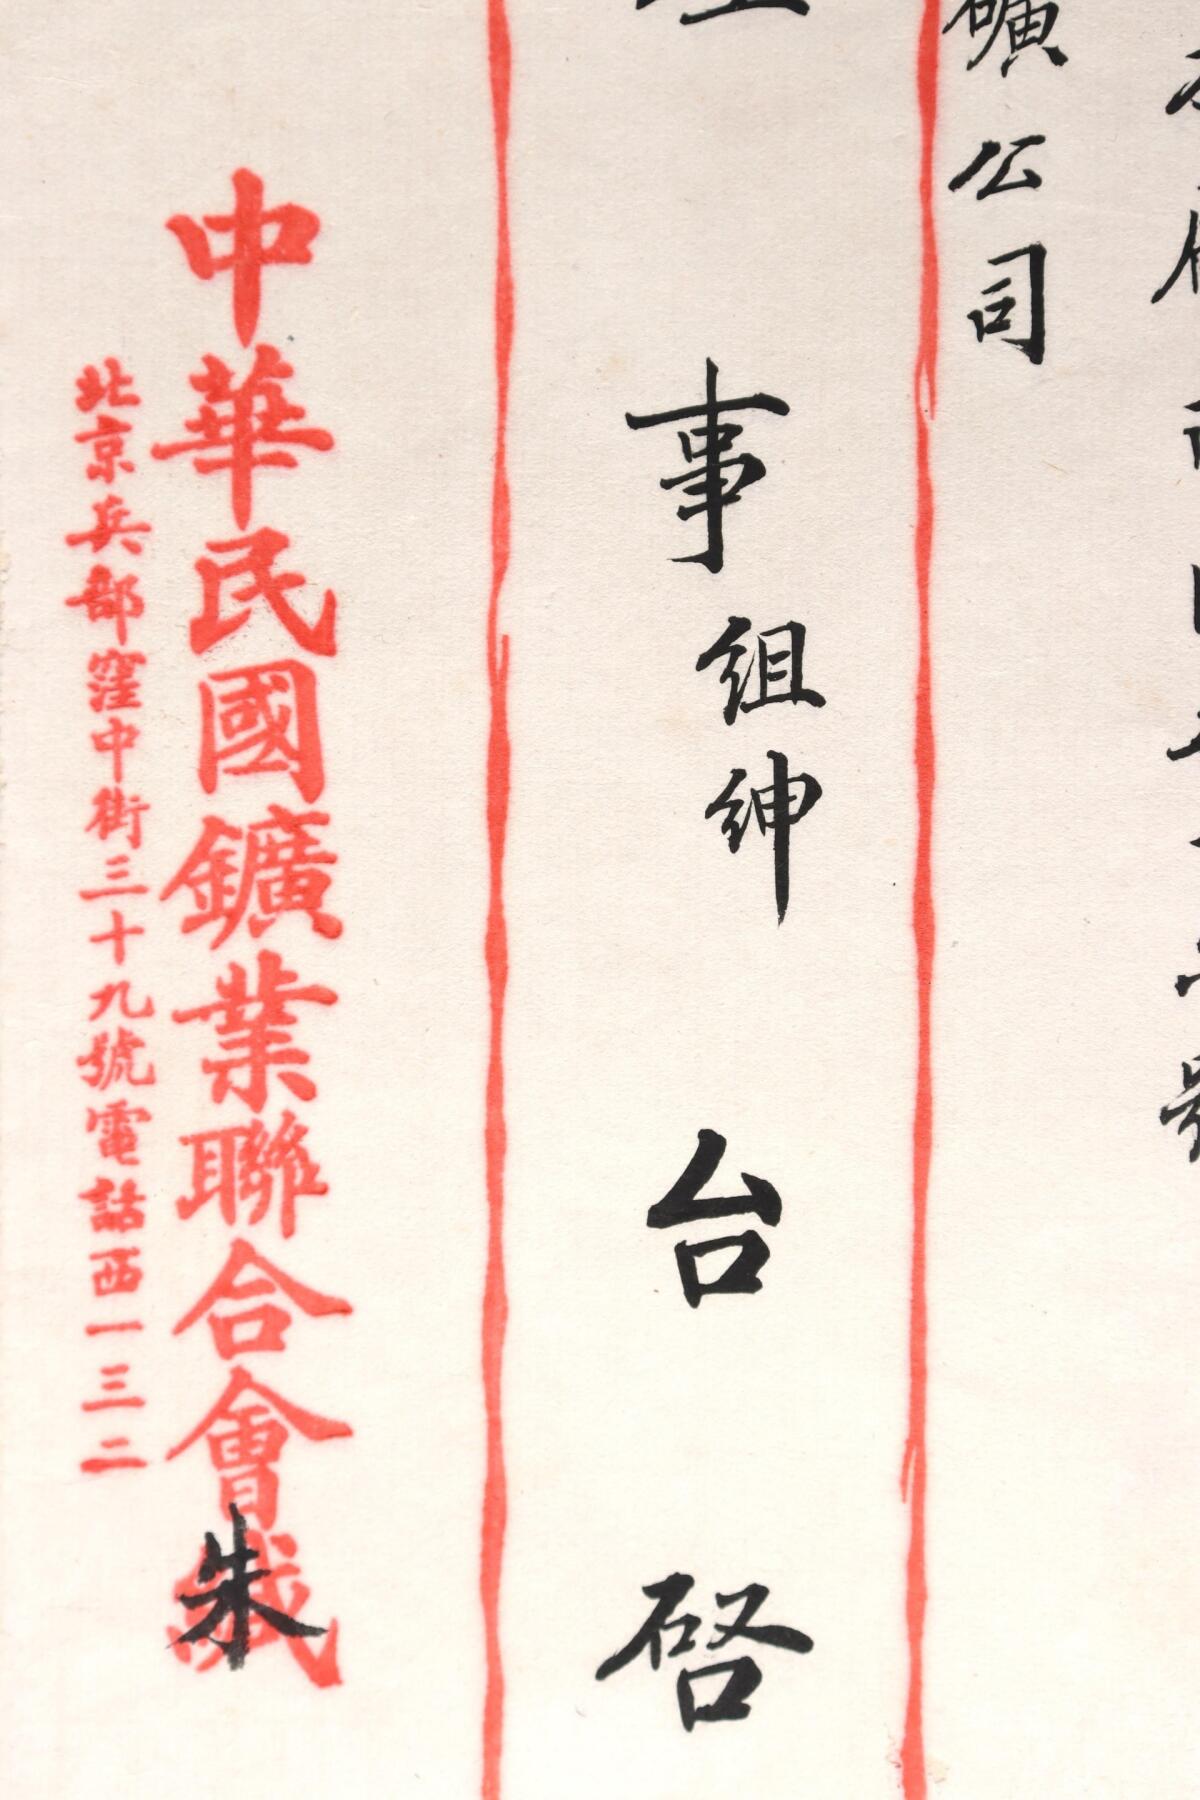 礦公司
事組紳台啓
中華民國鑛業聯合會緘
朱
北京兵部窪中街三十九號電話西一三二